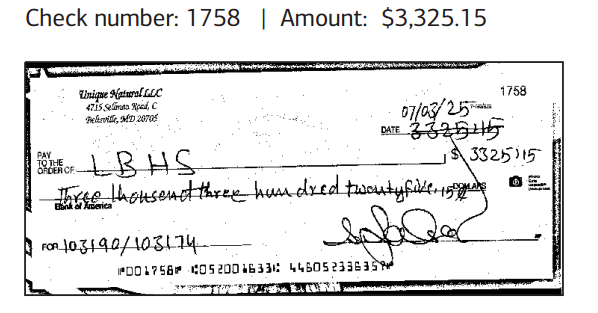 Check number: 1758 | Amount: $3,325.15
Unique Natural LLC
1758
4715 Sellman Road, C
Beltsville, MD 20705
07/03/25
DATE 3325.15
PAY
TO THE
ORDER OF LBHS $ 3325.15
Three thousend three hundred twentyfive, 15 DOLLARS
Bank of America
FOR 103190/103174
⑈001758⑈ ⑆052001633⑆ 446052336357⑈